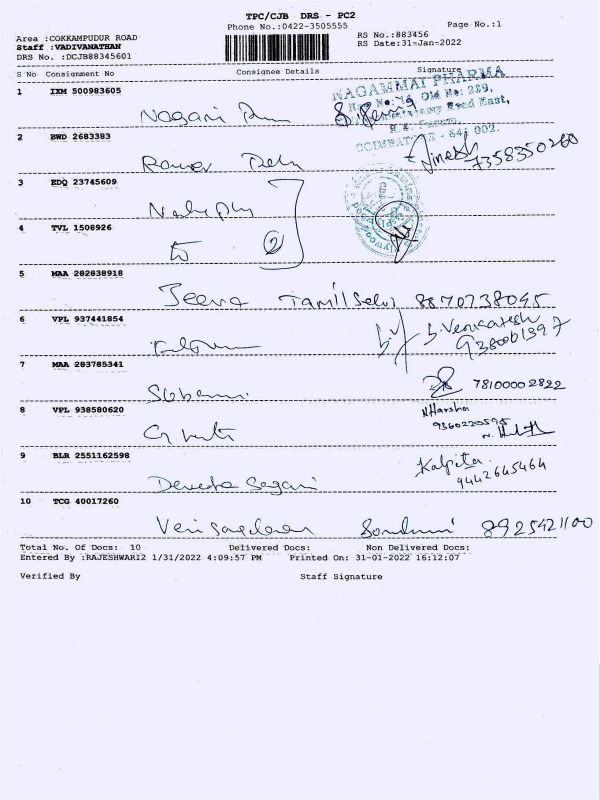 TPC/CJB DRS - PC2
Phone No.:0422-3505555
Page No.:1
Area :COKKAMPUDUR ROAD
Staff :VADIVANATHAN
DRS No. :DCJB88345601
RS No.:883456
RS Date:31-Jan-2022
S No Consignment No Consignee Details Signature
1 IXM 500983605
NAGAMMAI PHARMA
Old No: 289,
Road East,
COIMBATORE - 641 002.
2 BWD 2683383
Dinesh
7358350260
3 EDQ 23745609
4 TVL 1508926
to 2
5 MAA 282838918
Jeeva Tamil Selvi 8870738095
6 VPL 937441854
S. Venkatesh
9380061397
7 MAA 283785341
7810000 2822
8 VPL 938580620
N Harsha
9360220595
9 BLR 2551162598
Kalpita
9442645464
10 TCG 40017260
8925421100
Total No. Of Docs: 10 Delivered Docs: Non Delivered Docs:
Entered By :RAJESHWARI2 1/31/2022 4:09:57 PM Printed On: 31-01-2022 16:12:07
Verified By Staff Signature